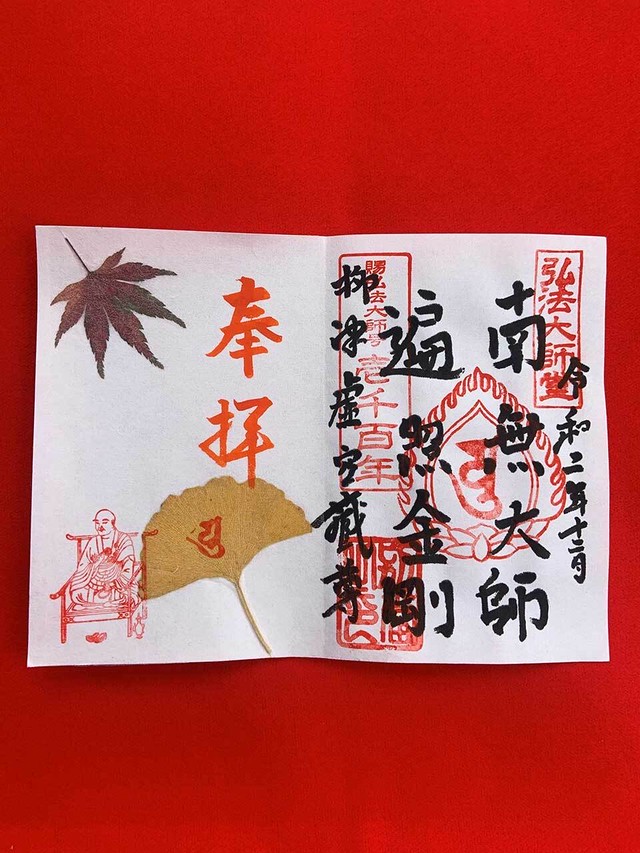 弘法大師堂
令和二年十二月
南無大師
遍照金剛
賜弘法大師号壱千百年
柳津虚空蔵尊
奉拝